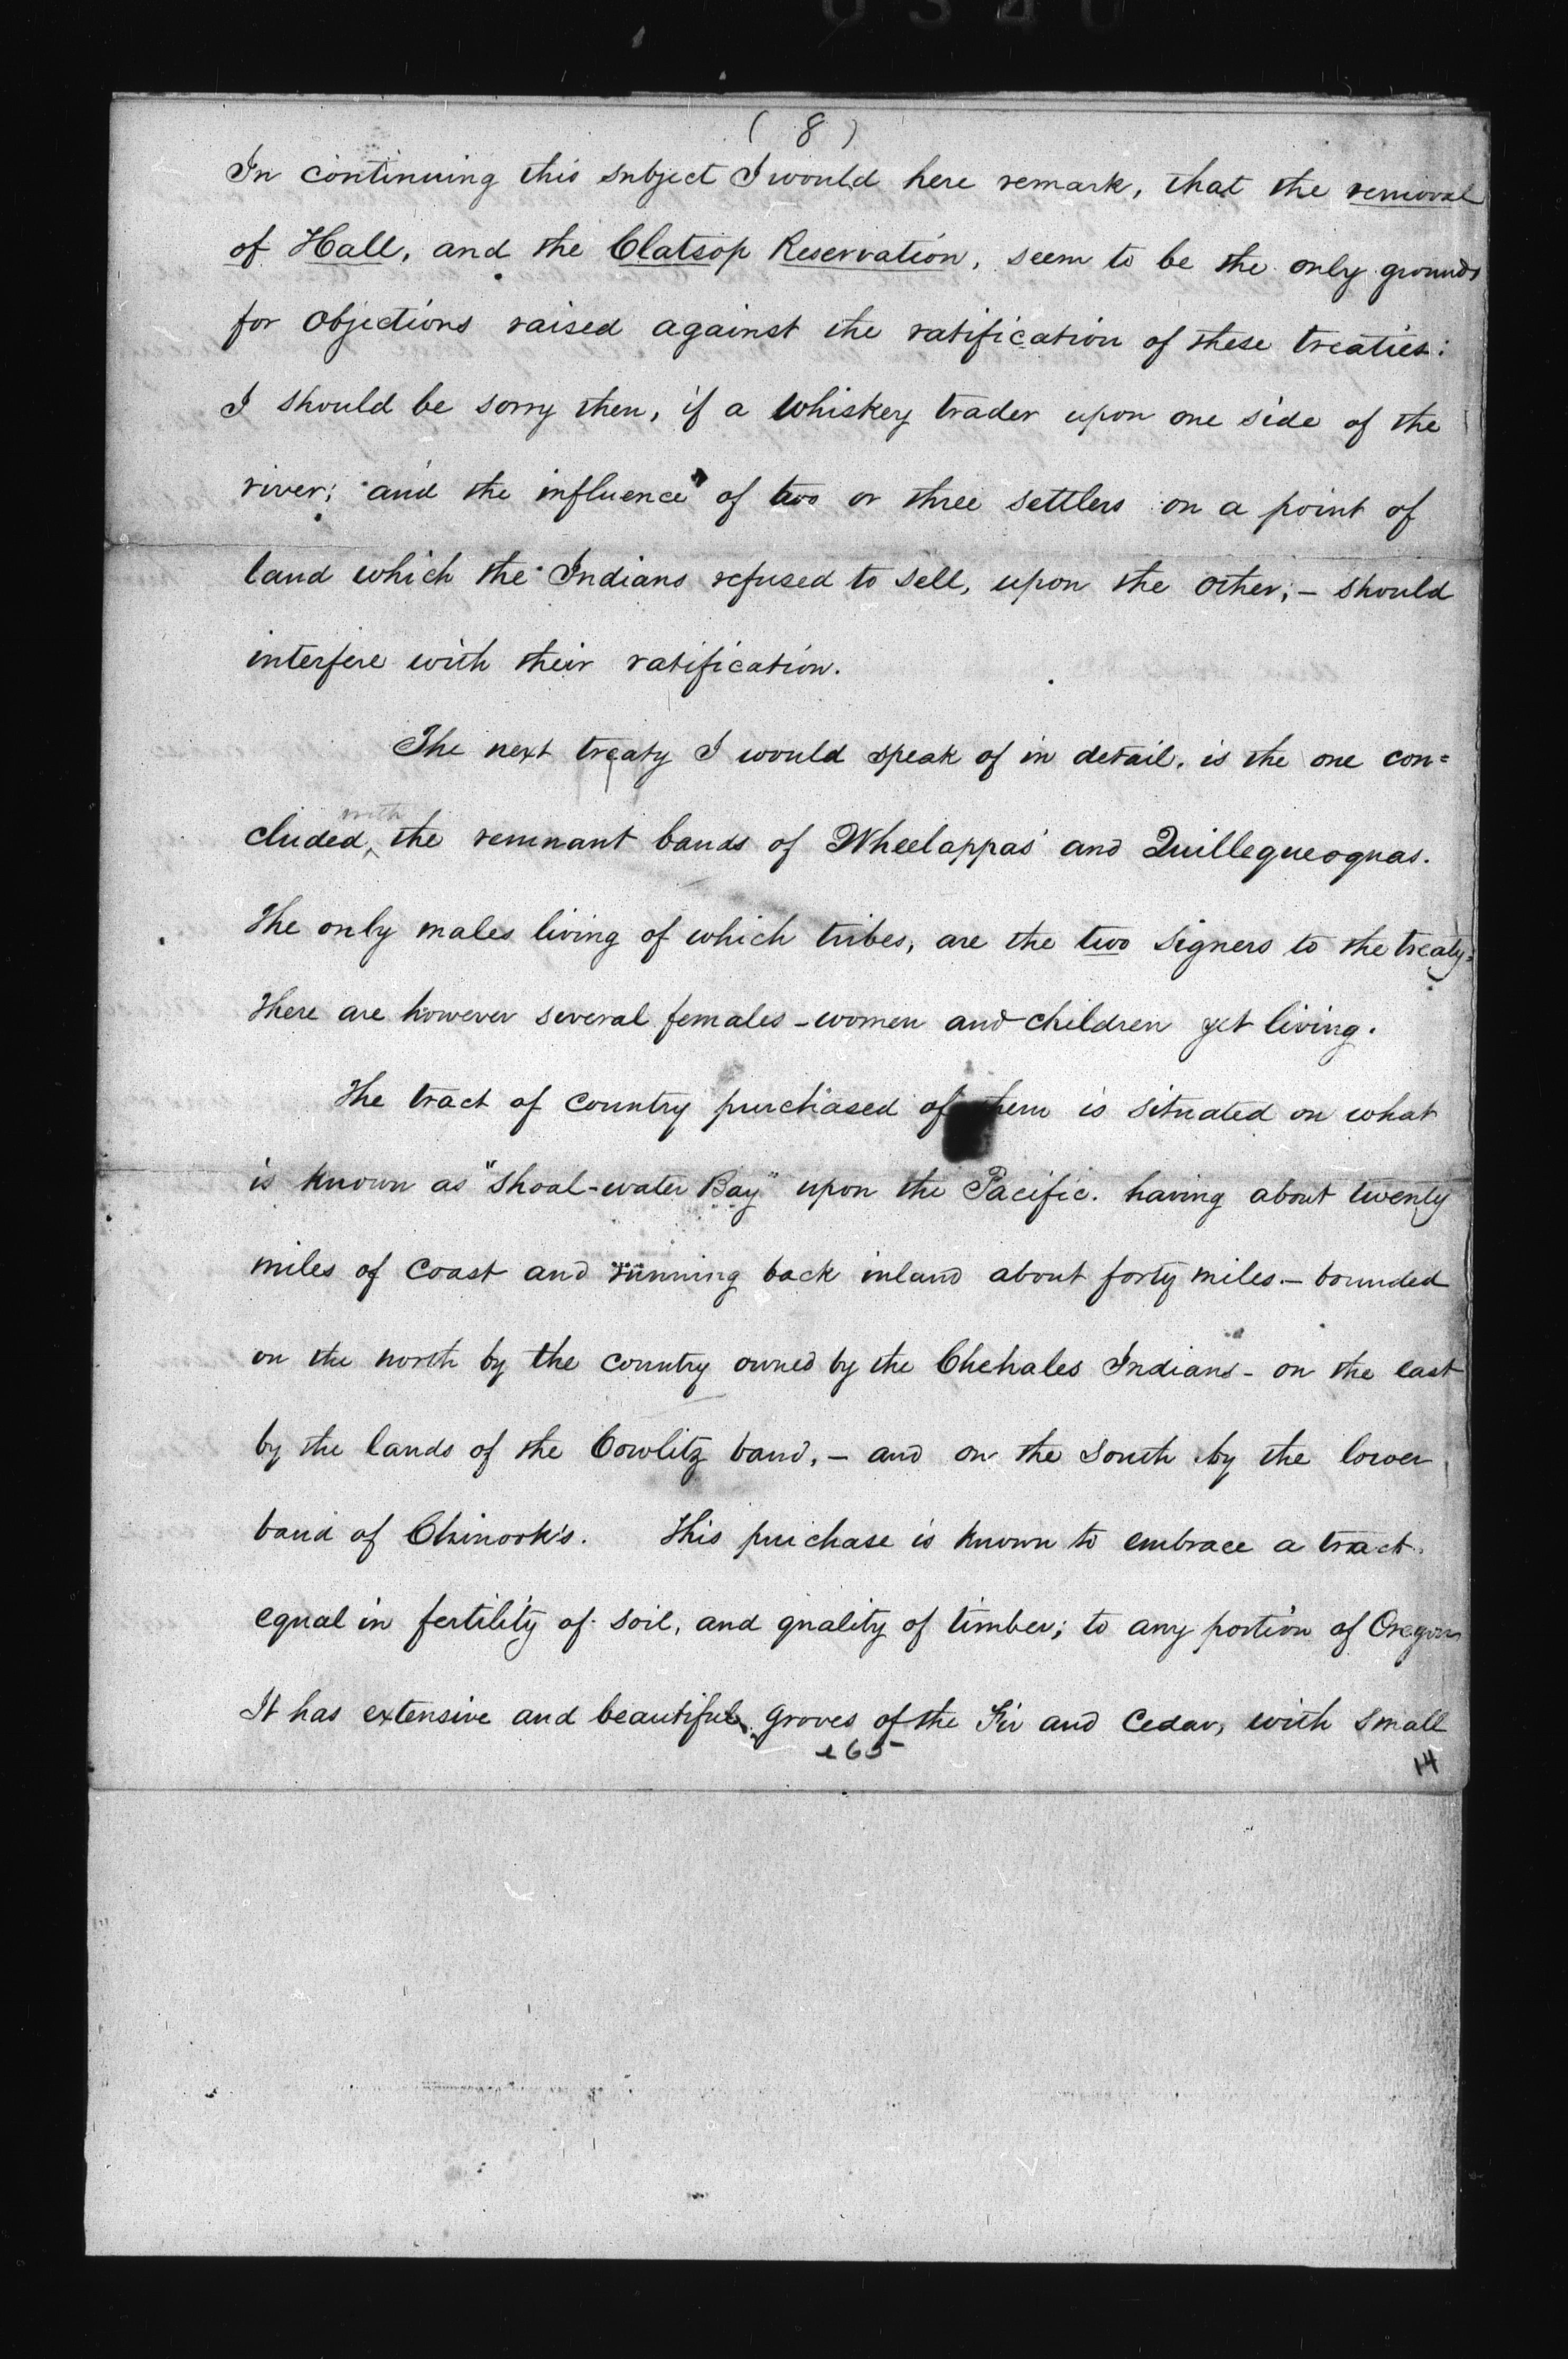 ( 8 )
In continuing this subject I would here remark, that the removal
of Hall, and the Clatsop Reservation, seem to be the only grounds
for objections raised against the ratification of these treaties:
I should be sorry then, if a whiskey trader upon one side of the
river; and the influence of two or three settlers on a point of
land which the Indians refused to sell, upon the other; — should
interfere with their ratification.
The next treaty I would speak of in detail, is the one con=
with
cluded, the remnant bands of Wheelappas and Quillequeoquas.
The only males living of which tribes, are the two signers to the treaty:
There are however several females - women and children yet living.
The tract of country purchased of them is situated on what
is known as "Shoal-water Bay" upon the Pacific. having about twenty
miles of coast and running back inland about forty miles. — bounded
on the north by the country owned by the Chehales Indians - on the east
by the lands of the Cowlitz band, — and on the south by the lower
band of Chinook's. This purchase is known to embrace a tract
equal in fertility of soil, and quality of timber; to any portion of Oregon
It has extensive and beautiful groves of the Fir and Cedar, with small
14